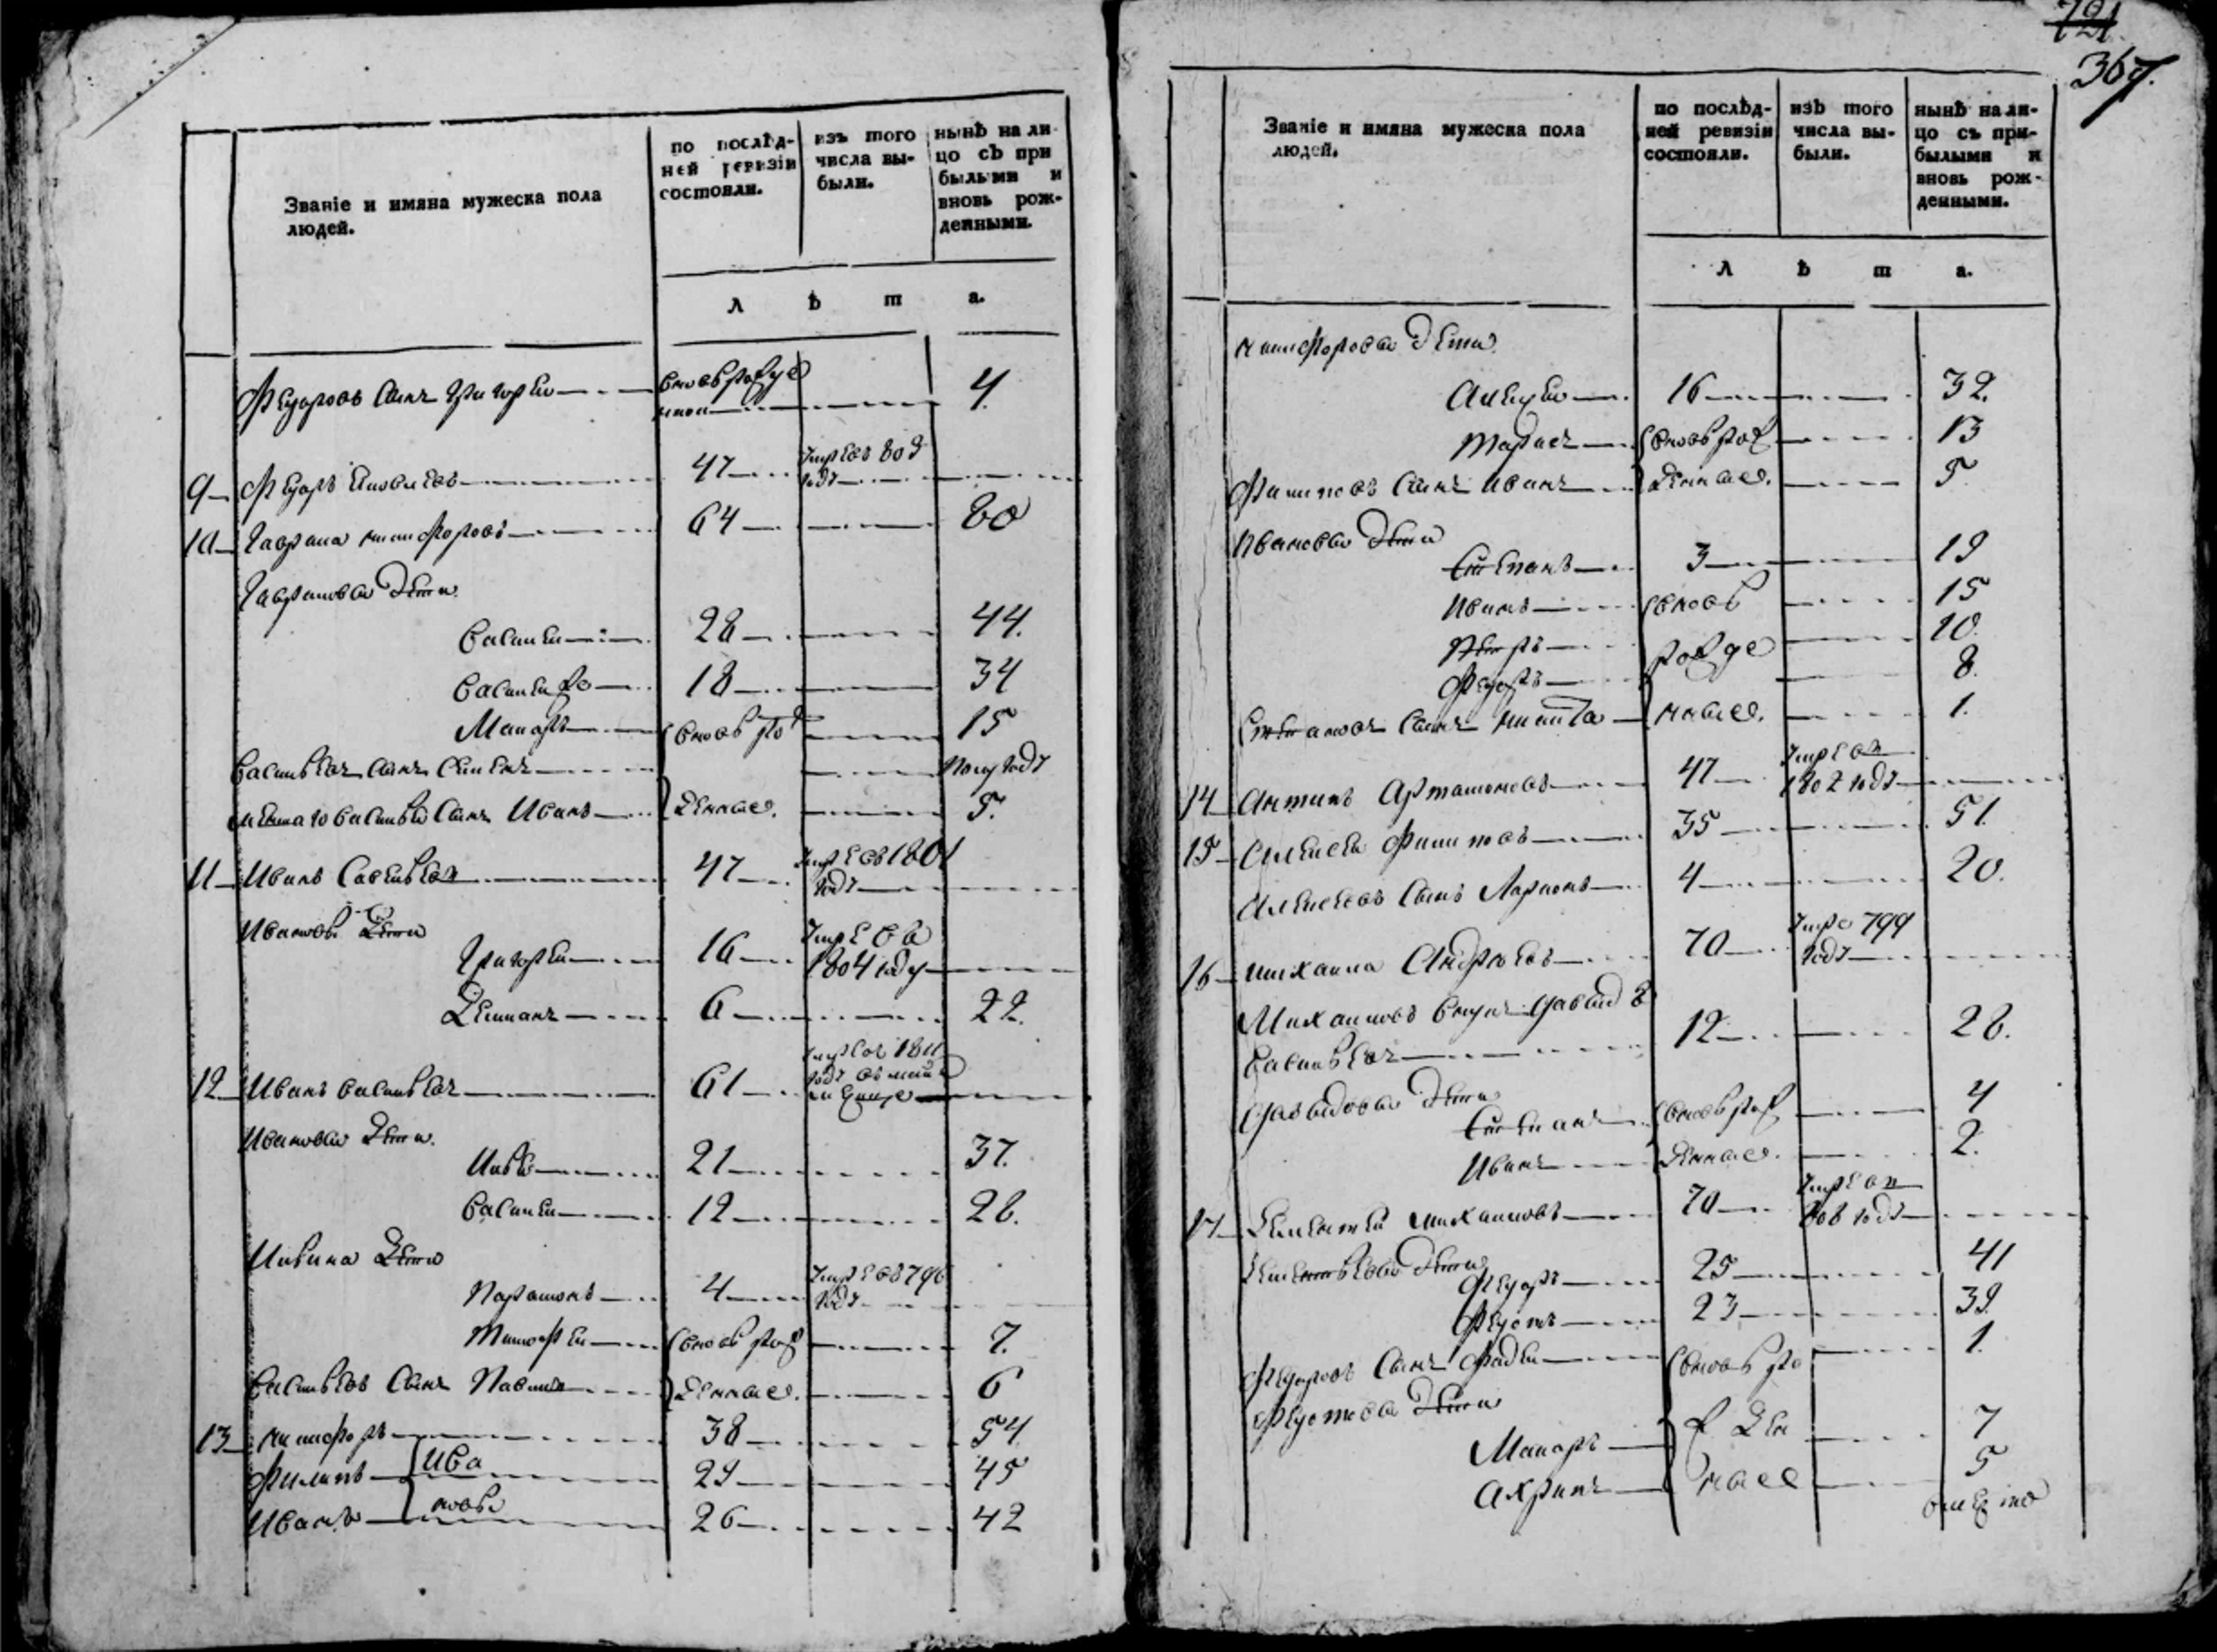 721.
367.
Званіе и имяна мужеска пола людей.
по послѣд-
ней ревизіи
состояли.
изъ того
числа вы-
были.
нынѣ на ли-
цо съ при
былыми и
вновь рож-
денными.
л ѣ т а.
Федоровъ сынъ Григорей вновьрожде 4.
нной
9 Федоръ Яковлевъ 47 умре въ 809
годѣ
10 Гаврила Никифоровъ 64 80
Гавриловы дети
Василей 28 44.
Василей же 18 34
Макаръ вновь рож 15
Васильевъ сынъ Семенъ полугодѣ
меньшаго Василья сынъ Иванъ денные. 5.
11 Иванъ Савельевъ 47 умре въ 1801
годѣ
Ивановы дети
Григорей 16 умре въ
1804 году
Демианъ 6 22.
12 Иванъ Васильевъ 61 умре въ 1811
годѣ
Ивановы дети.
Илья 21 37.
Василей 12 28.
Ильины дети
Парамонъ 4 умре въ 796
годѣ
Тимофей вновь рож 7.
Васильевъ сынъ Павелъ денные. 6
13 Никифоръ 38 54
Филипъ Ива 29 45
Иванъ новы 26 42
Званіе и имяна мужеска пола
людей.
по послѣд-
ней ревизіи
состояли.
изъ того
числа вы-
были.
нынѣ на ли-
цо съ при-
былыми и
вновь рож-
денными.
л ѣ т а.
Никифоровы дети.
Алексей 16 32.
Тарасъ вновь рож 13
Филиповъ сынъ Иванъ денные. 5.
Ивановы дети
Степанъ 3 19
Иванъ вновь 15
Петръ рожде 10.
Федоръ 8.
Степановъ сынъ Никита нные. 1.
14 Антипъ Артамоновъ 47 умре въ
1802 годѣ
15 Алексей Филиповъ 35 51.
Алексеевъ сынъ Ларионъ 4 20.
16 Михаила Андреевъ 70 умре 799
годѣ
Михаиловъ внукъ Давыдъ
Васильевъ 12 28.
Давыдовы дети
Степанъ вновь рож 4
Иванъ денные. 2.
17 Клементей Михаиловъ 70 умре въ
808 годѣ
Клементьевы дети
Федоръ 25 41
Федотъ 23 39.
Федоровъ сынъ Фадей вновь ро 1.
Федотовы дети
Макаръ ж ден 7
Ахрипъ ные 5